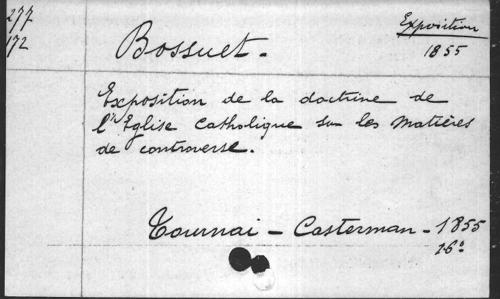 277
172
Exposition
1855
Bossuet.
Exposition de la doctrine de
l'Eglise catholique sur les matières
de controverse.
Tournai - Casterman - 1855
16°